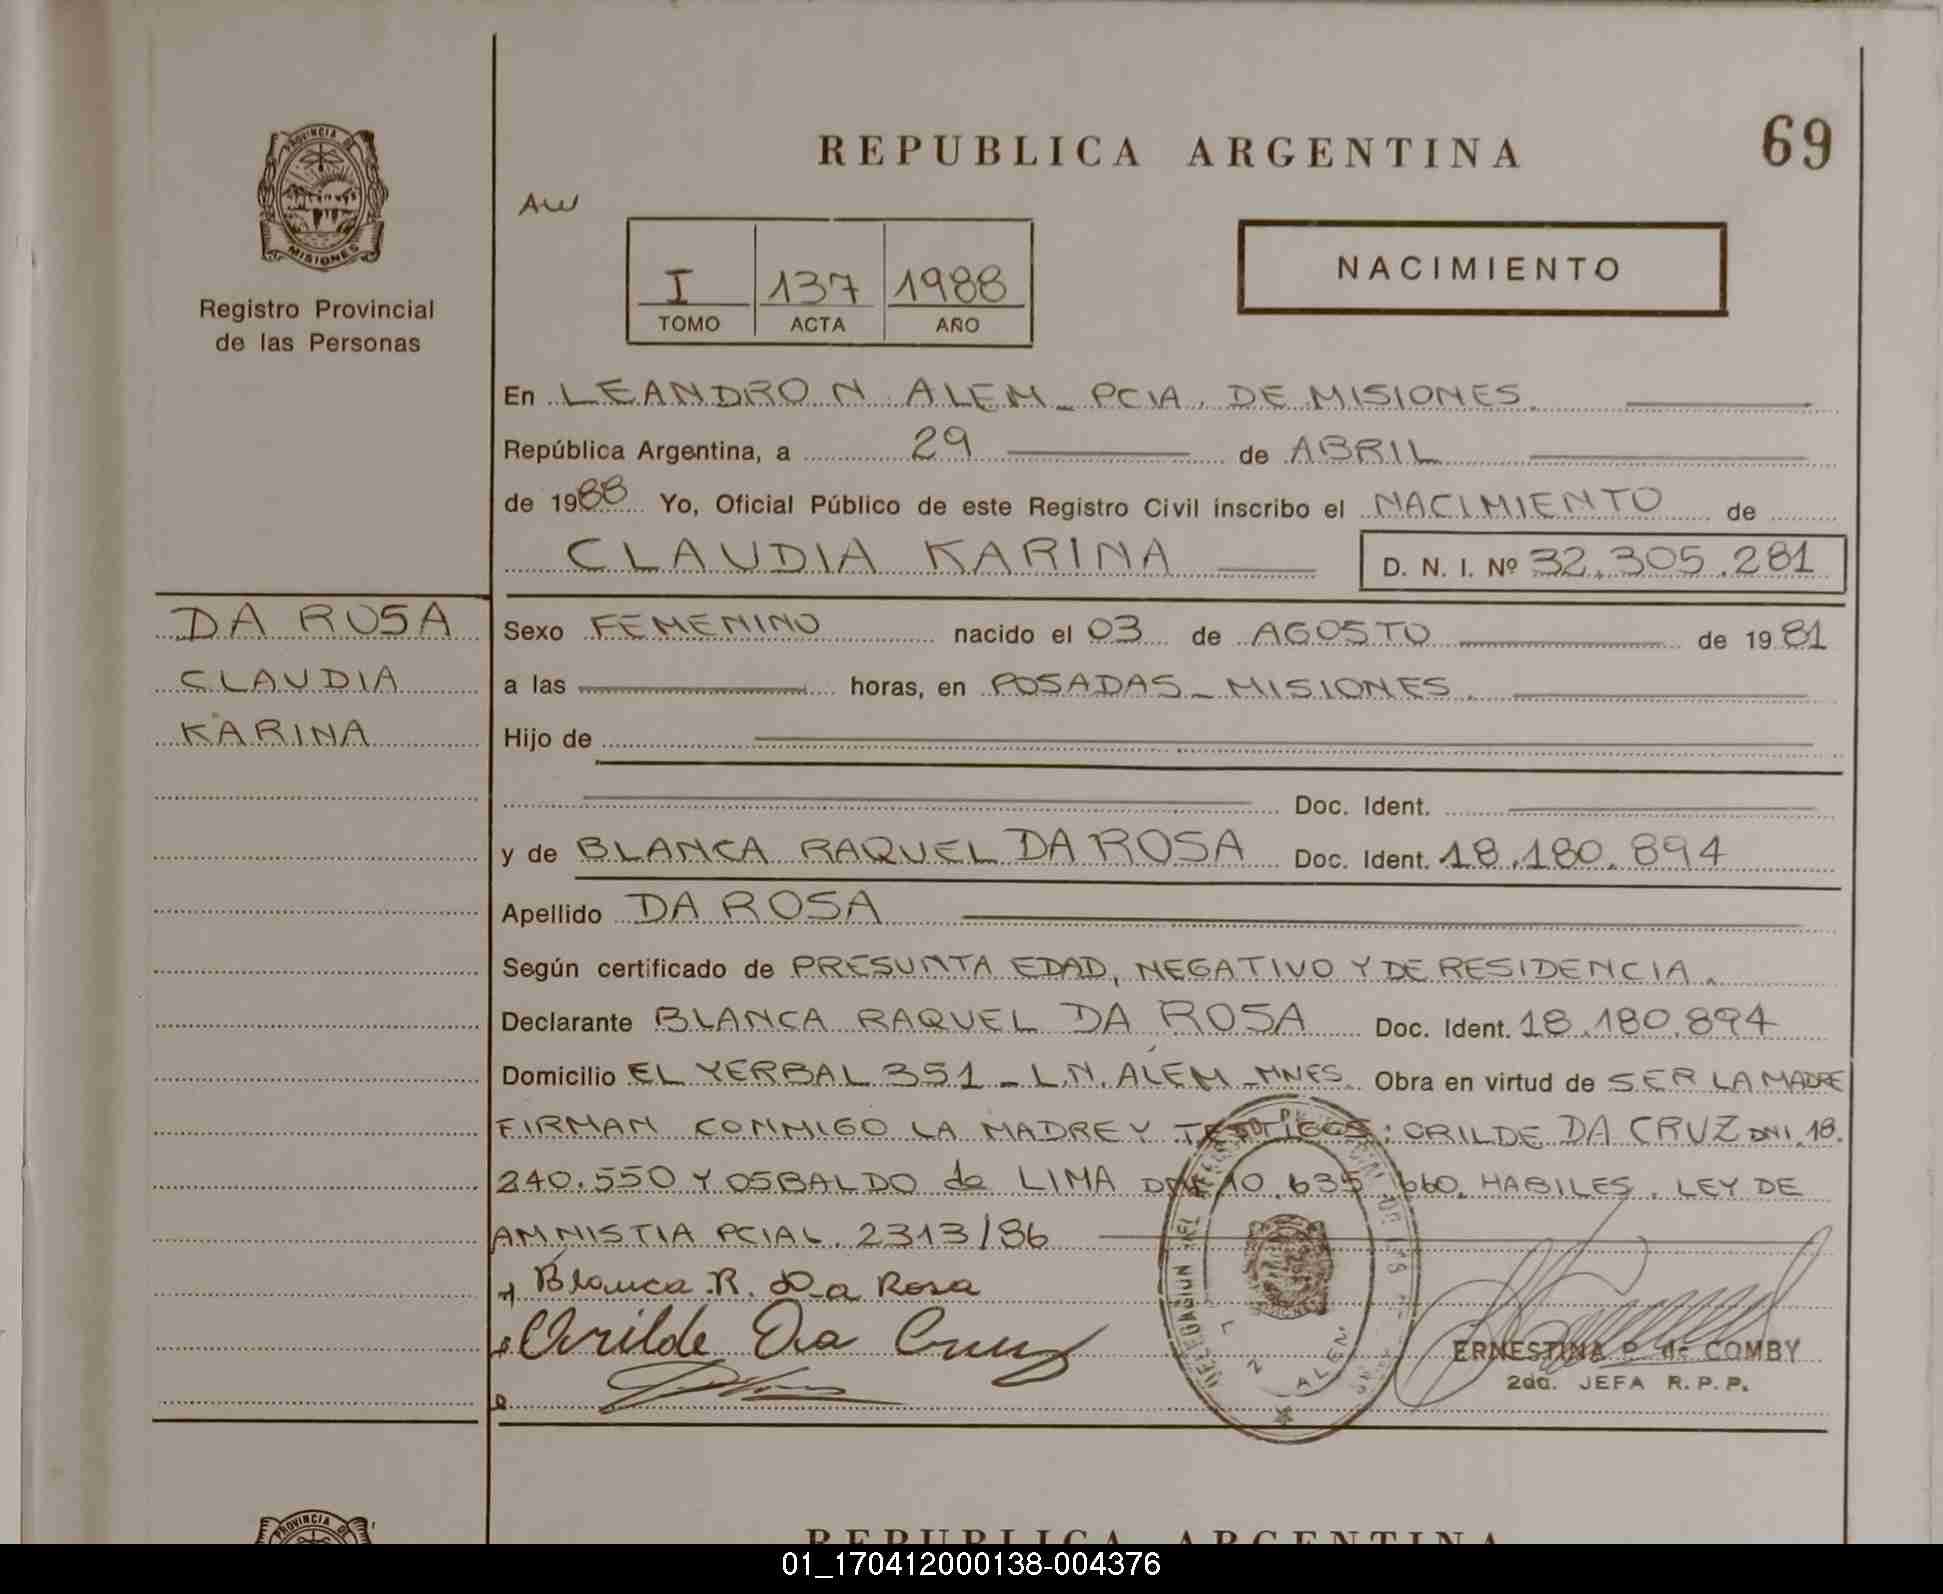 PROVINCIA DE
MISIONES
Registro Provincial
de las Personas
REPUBLICA ARGENTINA
69
AW
I 137 1988
TOMO ACTA AÑO
NACIMIENTO
En LEANDRO N. ALEM - PCIA. DE MISIONES.
República Argentina, a 29 de ABRIL
de 1988 Yo, Oficial Público de este Registro Civil inscribo el NACIMIENTO de
CLAUDIA KARINA D. N. I. Nº 32.305.281
DA ROSA
CLAUDIA
KARINA
Sexo FEMENINO nacido el 03 de AGOSTO de 1981
a las horas, en POSADAS - MISIONES.
Hijo de
Doc. Ident.
y de BLANCA RAQUEL DA ROSA Doc. Ident. 18.180.894
Apellido DA ROSA
Según certificado de PRESUNTA EDAD, NEGATIVO Y DE RESIDENCIA.
Declarante BLANCA RAQUEL DA ROSA Doc. Ident. 18.180.894
Domicilio EL YERBAL 351 - L.N. ALEM - MNES. Obra en virtud de SER LA MADRE
FIRMAN CONMIGO LA MADRE Y TESTIGOS: ORILDE DA CRUZ DNI. 18.
240.550 Y OSBALDO de LIMA DNI 10.635.660. HABILES. LEY DE
AMNISTIA PCIAL. 2313/86
Blanca R. Da Rosa
Orilde Da Cruz
DELEGACION DEL
ALEM
ERNESTINA P. de COMBY
2da. JEFA R.P.P.
PROVINCIA DE
REPUBLICA ARGENTINA
01_170412000138-004376